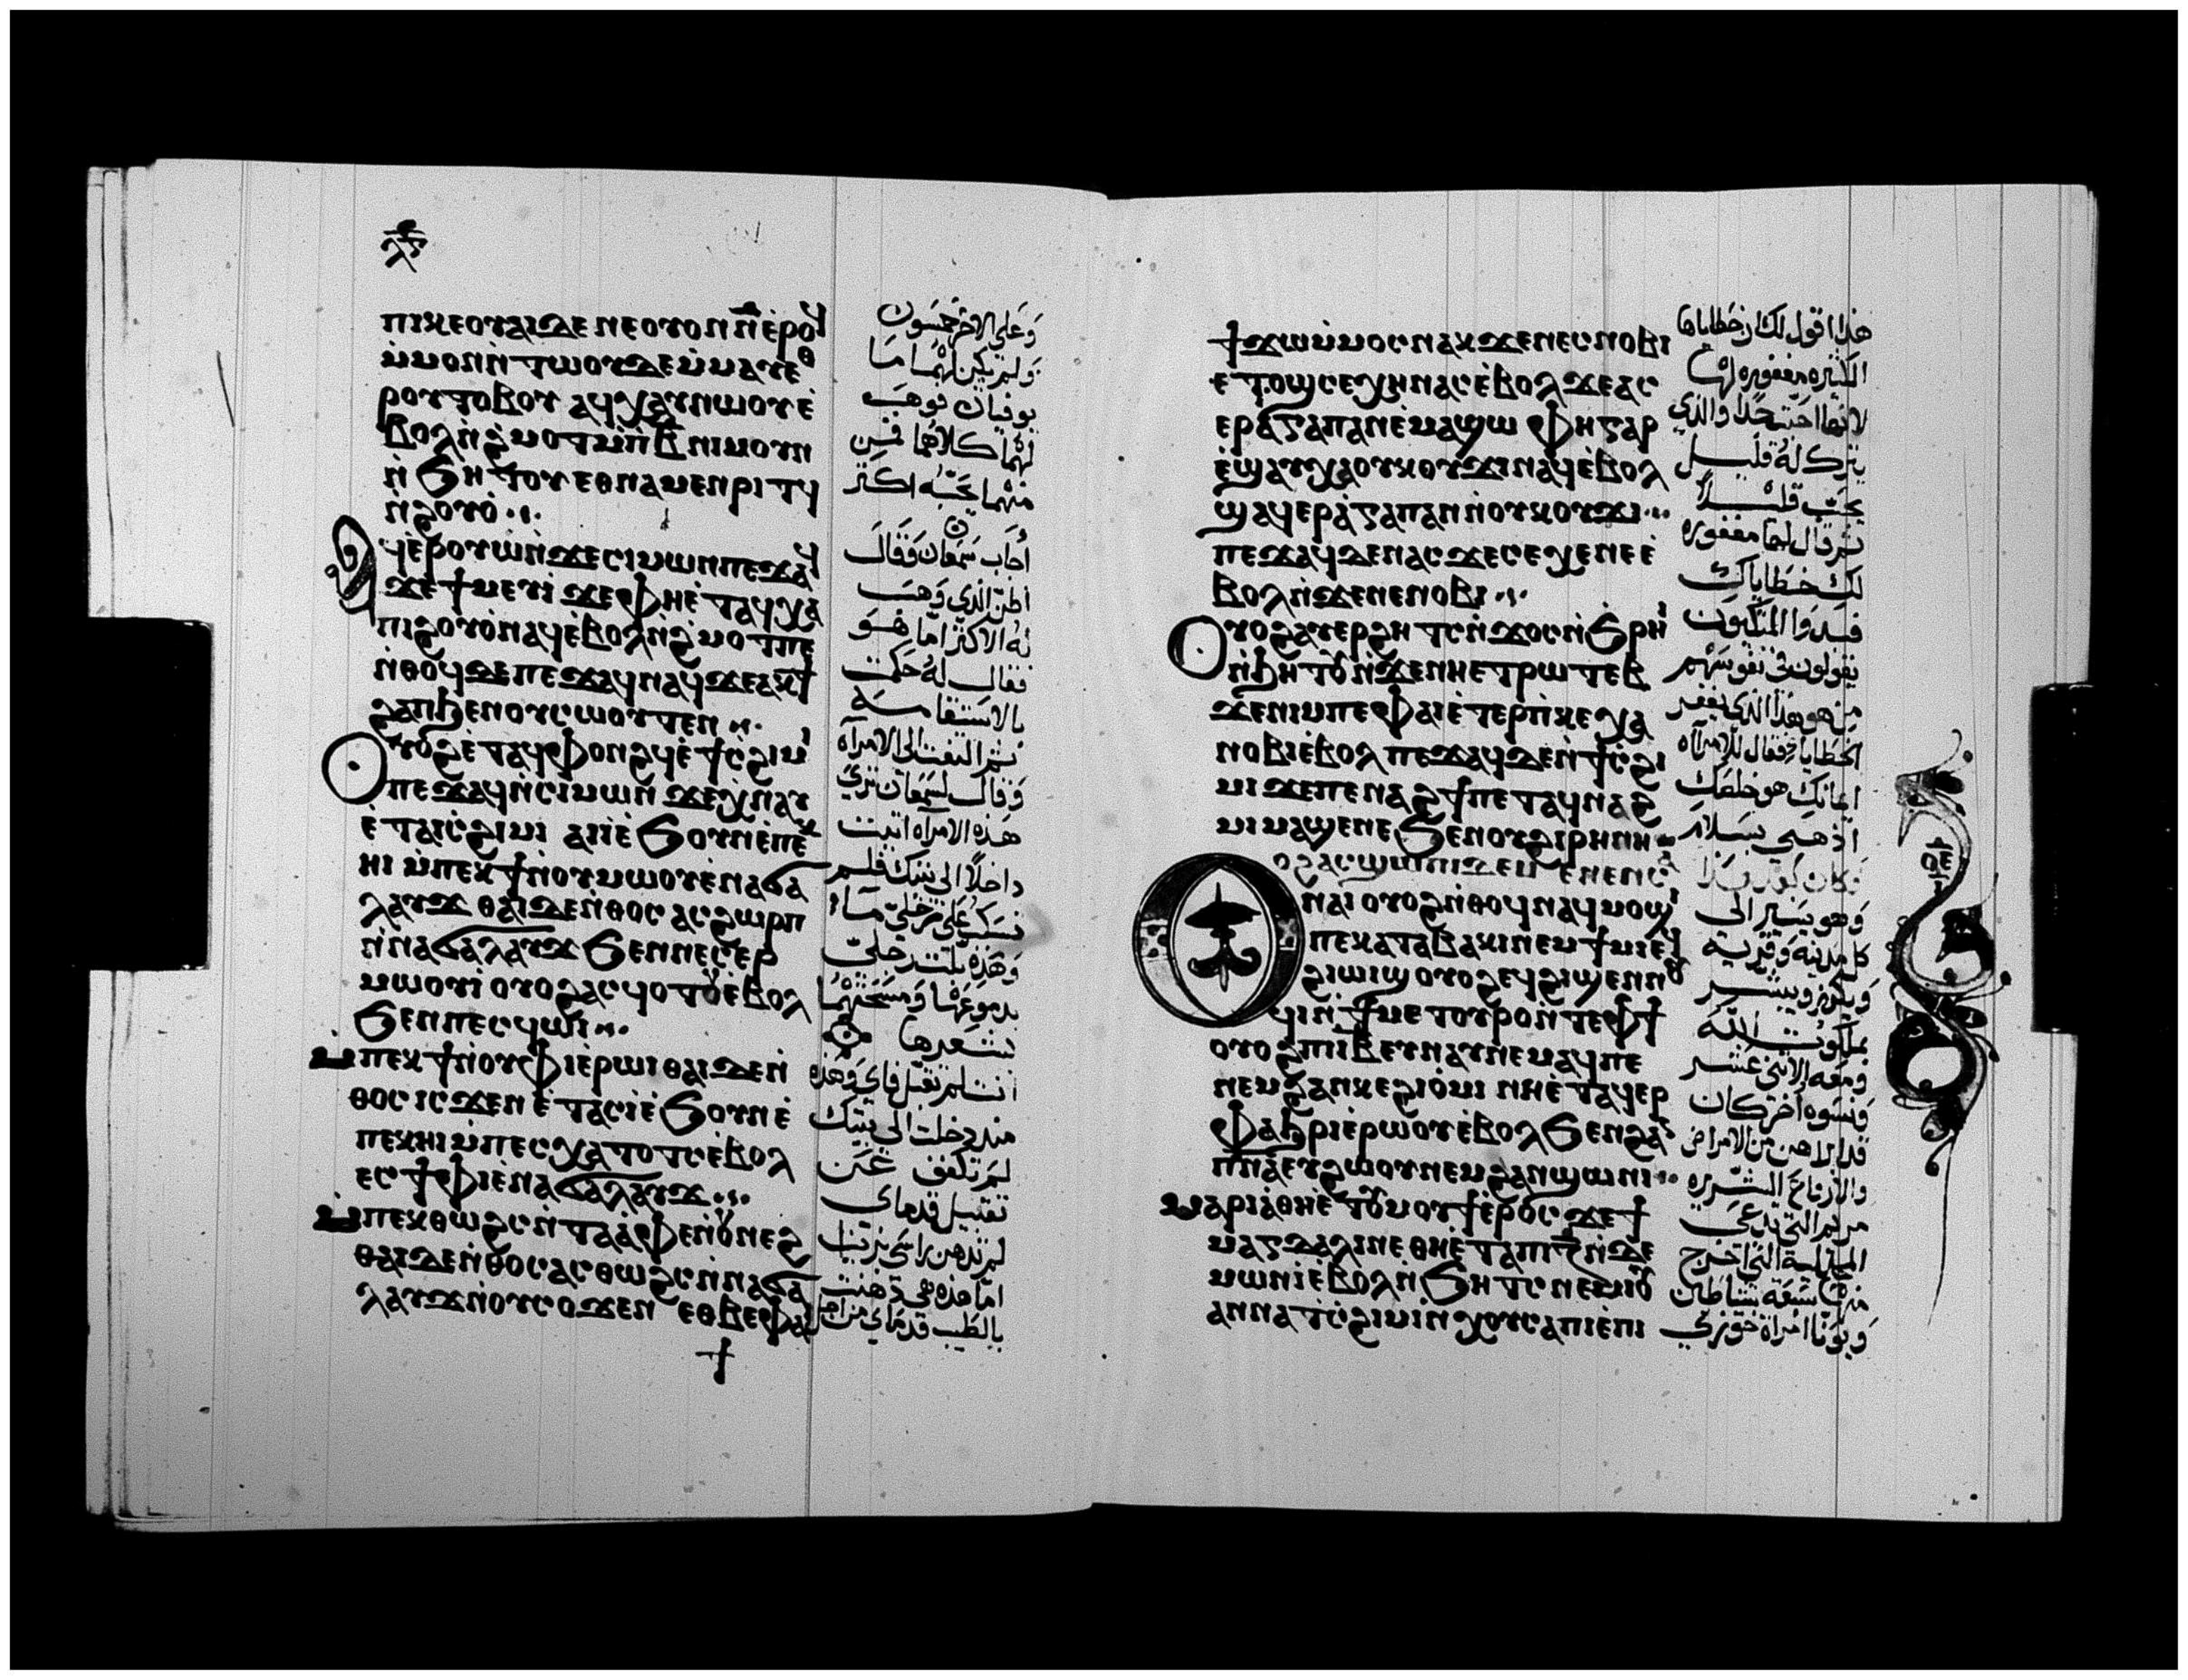 ⲗ̅ⲋ̅
ⲡⲓⲭⲉⲟⲩⲁⲓⲇⲉ ⲛⲉⲟⲩⲟⲛ ⲛ̅ ⲉ̀ⲣⲟϥ
ⲙ̀ⲙⲟⲛⲛ̀ⲧⲱⲟⲩⲇⲉⲙ̀ⲙⲁⲩⲉⲑ
ⲣⲟⲩⲧⲟⲃⲟⲩ ⲁϥⲭⲁⲩⲛⲱⲟⲩⲉ̀
ⲃⲟⲗⲛ̀ϩ̀ⲙⲟⲧⲙ̀ⲡⲃ ⲛⲓⲙⲟⲩⲛ
ⲛ̀ϧⲏⲧⲟⲩ ⲉⲑⲛⲁⲙⲉⲛⲣⲓⲧϥ
ⲛ̀ϩⲟⲩⲟ̀
ⲁϥⲉ̀ⲣⲟⲩⲱⲛ̀ϫⲉⲥⲓⲙⲱⲛⲡⲉϫⲁϥ
ϫⲉϯⲙⲉⲩⲓ̀ ϫⲉⲫⲏⲉ̀ⲧⲁϥⲭⲁ
ⲡⲓϩⲟⲩⲟ̀ⲛⲁϥⲉ̀ⲃⲟⲗⲛ̀ϩ̀ⲙⲟⲧⲡⲉ
ⲛ̀ⲑⲟϥⲇⲉⲡⲉϫⲁϥⲛⲁϥϫⲉⲁⲕϯ
ϩⲁⲡϧⲉⲛⲟⲩⲥⲱⲟⲩⲧⲉⲛ
ⲟⲩⲟϩⲉ̀ⲧⲁϥⲫⲟⲛϩϥⲉ̀ϯⲥ̀ϩⲓⲙⲓ
ⲡⲉϫⲁϥⲛ̀ⲥⲓⲙⲱⲛ ϫⲉⲭ̀ⲛⲁⲩ
ⲉ̀ⲧⲁⲓⲥ̀ϩⲓⲙⲓ ⲁⲓⲓ̀ⲉ̀ϧⲟⲩⲛⲉ̀ⲡⲉⲕ
ⲏⲓ ⲙ̀ⲡⲉⲕϯⲛⲟⲩⲙⲱⲟⲩⲉ̀ⲛⲁϭⲁ
ⲗⲁⲩϫ ⲑⲁⲓⲇⲉⲛ̀ⲑⲟⲥ ⲁⲥϩⲱⲣⲡ
ⲛ̀ⲛⲁϭⲁⲗⲁⲩϫ ϧⲉⲛⲛⲉⲥⲉⲣ
ⲙⲱⲟⲩⲓ̀ ⲟⲩⲟϩⲁⲥϥⲟⲧⲟⲩⲉ̀ⲃⲟⲗ
ϧⲉⲛⲡⲉⲥϥⲱⲓ
ⲙ̀ⲡⲉⲕϯⲛ̀ⲟⲩⲫⲓⲉ̀ⲣⲱⲓ ⲑⲁⲓⲇⲉⲛ̀
ⲑⲟⲥ ⲓⲥϫⲉⲛ ⲉ̀ⲧⲁⲥⲓ̀ⲉ̀ϧⲟⲩⲛⲉ̀
ⲡⲉⲕⲏⲓ ⲙ̀ⲡⲉⲥⲭⲁⲧⲟⲧⲥⲉ̀ⲃⲟⲗ
ⲉⲥϯⲫⲓⲉ̀ⲛⲁϭⲁⲗⲁⲩϫ
ⲙ̀ⲡⲉⲕⲑⲱϩⲥⲛ̀ⲧⲁⲁ̀ⲫⲉⲛ̀ⲟⲩⲛⲉϩ
ⲑⲁⲓⲇⲉⲛ̀ⲑⲟⲥⲁⲥⲑⲱϩⲥⲛ̀ⲛⲁϭⲁ
ⲗⲁⲩϫⲛ̀ⲟⲩⲥⲟϫⲉⲛ ⲉⲑⲃⲉⲫⲁⲓ
وَعَلى الاخر خمسون
وَلم يكن لهُما مَا
يوفيان فوهَب
لهُما كلاهُما فمَن
منهُما يحَبّه اكثر
أجَاب سَمعَان وَقَال
اظن الذي وَهَب
لهُ الاكثر امّا هُوَ
فقال لهُ حَكمت
بالاستقامَة
ثم التفت الى الامرأه
وَقال لسَمعَان تري
هَذه الامرآه اتيت
داخلاً الى بيتك فلم
تسكب عَلى رجلى مَاء
وَهَذِه بلت رجلىّ
بدموعَها وَمسَحَتهُما
بشعرها
انت لم تقبّل فاي وَهَذه
منذ دخلت الى بيتك
لمَ تكفف عَن
تقبيل قدماى
لم تدهن راسَى بزيت
امّا هذه فهى دهنت
بالطيب قدمَاي من اجل
ϯϫⲱⲙ̀ⲙⲟⲥⲛⲁⲕ ϫⲉⲛⲉⲥⲛⲟⲃⲓ
ⲉⲧⲟϣⲥⲉⲭⲏⲛⲁⲥⲉ̀ⲃⲟⲗ ϫⲉⲁⲥ
ⲉⲣⲁ̀ⲅⲁⲡⲁⲛⲉ̀ⲙⲁϣⲱ ⲫⲏⲅⲁⲣ
ⲉ̀ϣⲁⲩⲭⲁⲟⲩⲕⲟⲩϫⲓⲛⲁϥⲉ̀ⲃⲟⲗ
ϣⲁϥⲉⲣⲁ̀ⲅⲁⲡⲁⲛⲛ̀ⲟⲩⲕⲟⲩϫⲓ
ⲡⲉϫⲁϥⲇⲉⲛⲁⲥϫⲉⲥⲉⲭⲉⲛⲉⲉ̀
ⲃⲟⲗⲛ̀ϫⲉⲛⲉⲛⲟⲃⲓ
ⲟⲩⲟϩⲁⲩⲉⲣϩⲏⲧⲥⲛ̀ϫⲟⲥⲛ̀ϧⲣⲏⲓ
ⲛ̀ϧⲏⲧⲟⲩⲛ̀ϫⲉⲛⲏⲉⲧⲣⲱⲧⲉⲃ
ϫⲉⲛⲓⲙⲡⲉⲫⲁⲓⲉ̀ⲧⲉⲣⲡ̀ⲕⲉⲭⲁ
ⲛⲟⲃⲓⲉ̀ⲃⲟⲗ ⲡⲉϫⲁϥⲇⲉⲛ̀ϯⲥ̀ϩⲓ
ⲙⲓ ϫⲉⲡⲉⲛⲁϩϯⲡⲉⲧⲁϥⲛⲁϩ
ⲙⲓ ⲙⲁϣⲉⲛⲉϧⲉⲛⲟⲩϩⲓⲣⲏⲛⲏ
ⲟϩⲁⲥϣⲱⲡⲓⲇⲉⲙⲉⲛⲉⲛⲥⲁ
ⲛⲁⲓ ⲟⲩⲟϩⲛ̀ⲑⲟϥⲛⲁϥⲙⲟϣⲓ
ⲡⲉⲕⲁⲧⲁⲃⲁⲕⲓⲛⲉⲙϯⲙⲓⲉϥ
ϩⲓⲱⲓϣ ⲟⲩⲟϩⲉϥϩⲓϣⲉⲛⲛⲟⲩ
ϥⲓⲛ̀ϯⲙⲉⲧⲟⲩⲣⲟⲛⲧⲉⲫϯ
ⲟⲩⲟϩⲡⲓⲓ̅ⲃ̅ⲉⲩⲛⲁⲩⲛⲉⲙⲁϥⲡⲉ
ⲛⲉⲙϩⲁⲛⲕⲉϩⲓⲟ̀ⲙⲓ ⲛⲏⲉ̀ⲧⲁϥⲉⲣ
ⲫⲁϧⲣⲓⲉ̀ⲣⲱⲟⲩⲉ̀ⲃⲟⲗϧⲉⲛϩⲁⲛ
ⲡⲛⲁ̅ⲉⲩϩⲱⲟⲩⲛⲉⲙϩⲁⲛϣⲱⲛⲓ
ⲙⲁⲣⲓⲁ̀ⲑⲏⲉ̀ⲧⲟⲩⲙⲟⲩϯⲉ̀ⲣⲟⲥ ϫⲉϯ
ⲙⲁⲅⲇⲁⲗⲓⲛⲉⲑⲏⲉ̀ⲧⲁⲡⲓⲍ̅ⲛ̀ⲇⲉ
ⲙⲱⲛⲓ̀ⲉ̀ⲃⲟⲗⲛ̀ϧⲏⲧⲥ ⲛⲉⲙⲓⲱ̅
ⲁⲛⲛⲁⲧⲥ̀ϩⲓⲙⲓⲛ̀ⲭⲟⲩⲥⲁⲡⲓⲉ̀ⲡⲓ
هذا اقول لك ان خطَاياها
الكثيره مغفوره لهَا
لانها احبّت جداً وَالذي
يترك لهُ قليل
يحَبّ قليلاً
ثم قال لهَا مغفوره
لك خطَاياكِ
فبَدوَا المتكيون
يقولون في نفوسَهُم
مَن هو هذا الذى يغفر
الخطايا فقال للامرآه
ايمانكِ هو خلصَكِ
اذهبى بسَلام
وَهو يسَير الى
كل مدينه وَقريه
وَيكرز ويبشر
بملكوت الله
وَمعَه الاثنى عَشر
وَنسَوه اخر كان
قد ابراهن من الامراض
والارواح الشريره
مريم التى تدعَى
المجدلية التى اخرج
منهَا سَبعَة شياطين
وَيونا امراة خوزي
ⲟⲉ̅